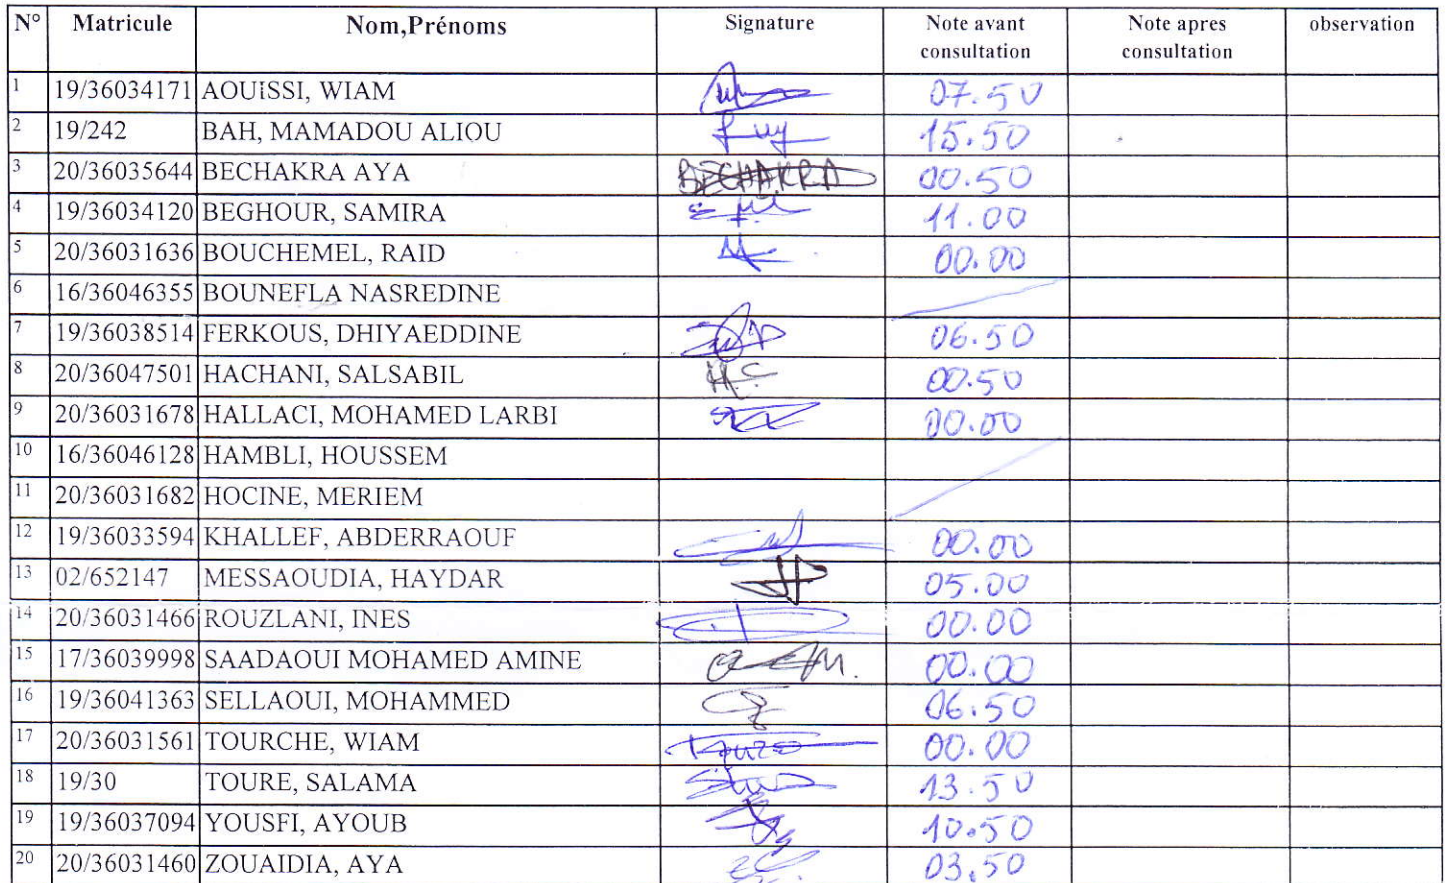 N° Matricule Nom,Prénoms Signature Note avant consultation Note apres consultation observation
1 19/36034171 AOUISSI, WIAM 07.50
2 19/242 BAH, MAMADOU ALIOU 15.50
3 20/36035644 BECHAKRA AYA BECHAKRA 00.50
4 19/36034120 BEGHOUR, SAMIRA 11.00
5 20/36031636 BOUCHEMEL, RAID 00.00
6 16/36046355 BOUNEFLA NASREDINE
7 19/36038514 FERKOUS, DHIYAEDDINE 06.50
8 20/36047501 HACHANI, SALSABIL 00.50
9 20/36031678 HALLACI, MOHAMED LARBI 00.00
10 16/36046128 HAMBLI, HOUSSEM
11 20/36031682 HOCINE, MERIEM
12 19/36033594 KHALLEF, ABDERRAOUF 00.00
13 02/652147 MESSAOUDIA, HAYDAR 05.00
14 20/36031466 ROUZLANI, INES 00.00
15 17/36039998 SAADAOUI MOHAMED AMINE 00.00
16 19/36041363 SELLAOUI, MOHAMMED 06.50
17 20/36031561 TOURCHE, WIAM 00.00
18 19/30 TOURE, SALAMA 13.50
19 19/36037094 YOUSFI, AYOUB 10.50
20 20/36031460 ZOUAIDIA, AYA 03,50